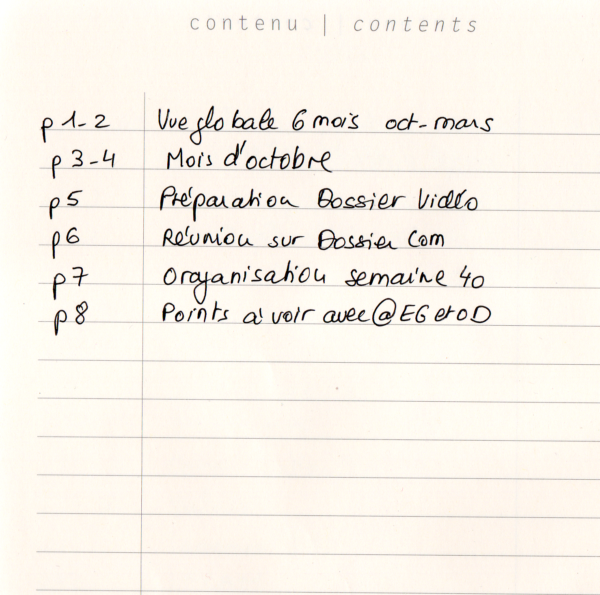 contenu | contents
p 1-2 Vue globale 6 mois oct-mars
p 3-4 Mois d'octobre
p5 Préparation Dossier Vidéo
p6 Réunion sur Dossier Com
p7 Organisation semaine 40
p8 Points à voir avec @EG et OD